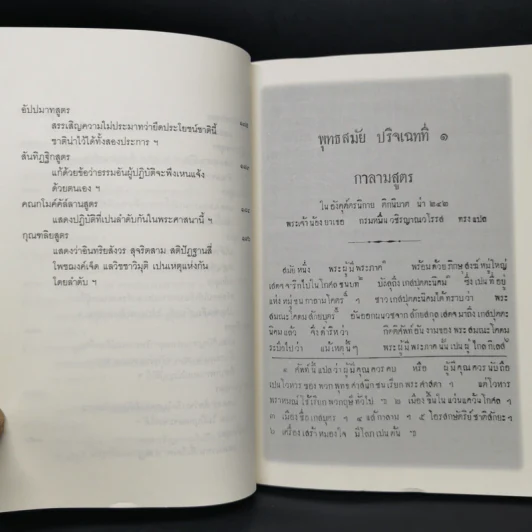 อัปปมาทสูตร
สรรเสริญความไม่ประมาทว่ายึดประโยชน์ชาตินี้
ชาติน่าไว้ได้ทั้งสองประการ ฯ
สันทิฏฐิกสูตร
แก้ด้วยข้อว่าธรรมอันผู้ปฏิบัติจะพึงเหนแจ้ง
ด้วยตนเอง ฯ
คณกโมคคัลลานสูตร
แสดงปฏิบัติที่เปนลำดับกันในพระศาสนานี้ ฯ
กุณฑลิยสูตร
แสดงว่าอินทริยสังวร สุจริตสาม สติปัฏฐานสี่
โพชฌงค์เจ็ด แลวิชชาวิมุติ เปนเหตุแห่งกัน
โดยลำดับ ฯ
พุทธสมัย ปริจเฉทที่ ๑
กาลามสูตร
ในอังคุต์ตรนิกาย ติกนิบาต น่า ๒๔๒
พระเจ้าน้องยาเธอ กรมหมื่นวชิรญาณวโรรส ทรงแปล
สมัยหนึ่ง พระผู้มีพระภาค พร้อมด้วยภิกษุสงฆ์หมู่ใหญ่
เสดจจาริกไปในโกศลชนบท บังลุถึงเกสปุตตนิคม ซึ่งเปนที่อยู่
แห่งหมู่ชนกาลามโคตร ฯ ชาวเกสปุตตนิคมได้ทราบว่า พระ
สมณะโคดมศักยบุตร อันออกผนวชจากศักยสกุล เสดจมาถึงเกสปุตตะ
นิคมแล้ว กิตติศัพท์อันงามของพระสมณะโคดม
ระบือไปว่า แม้เหตุนี้ๆ พระผู้มีพระภาคนั้นเปนผู้ไกลกิเลส
๑ ศัพท์นี้แปลว่าผู้มีคุณควรคบ หรือ ผู้มีคุณควรนับถือ
เปนโวหารของพวกพุทธศาสนิกชนเรียกพระศาสดา ฯ แต่โวหาร
พราหมณ์ใช้เรียกพวกฤษีทั่วไป ฯ ๒ เมืองขึ้นในแว่นแคว้นโกศล ฯ
๓ เมืองชื่อเกสบุตร ฯ ๔ แลกาลาม ฯ ๕ โอรสกษัตริย์ชาติสักยะ ฯ
๖ เครื่องเศร้าหมองใจ มีโลภเปนต้น ฯ